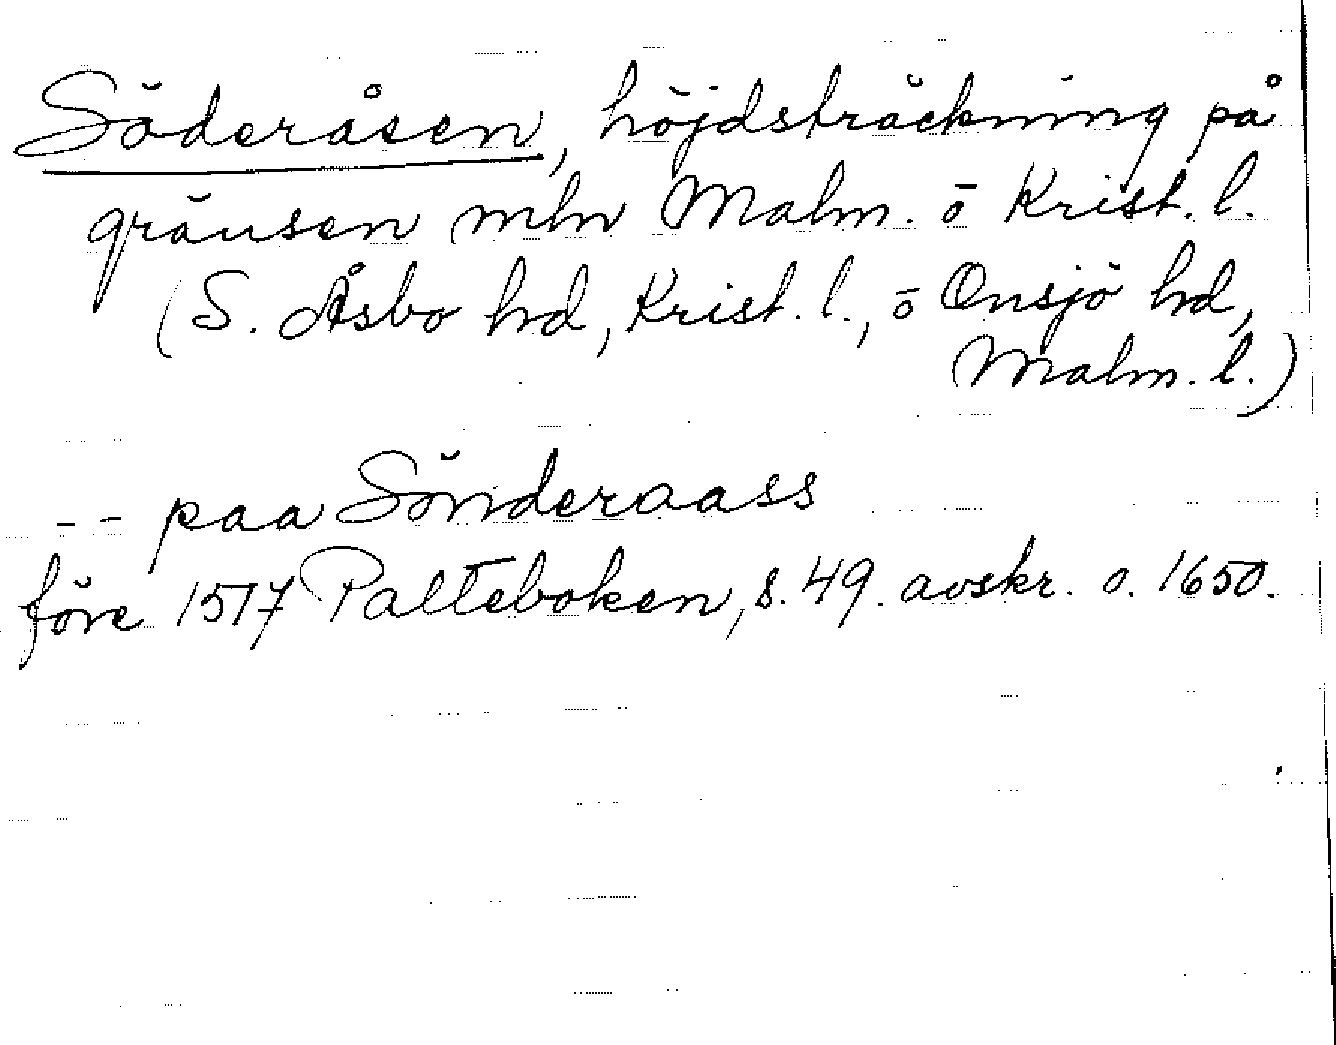 Söderåsen, höjdsträckning på
gränsen mln Malm. ō Krist. l.
(S. Åsbo hd, Krist. l., ō Onsjö hd,
Malm. l.)
-- paa Sönderaass
före 1517 Palteboken, s. 49. avskr. o. 1650.